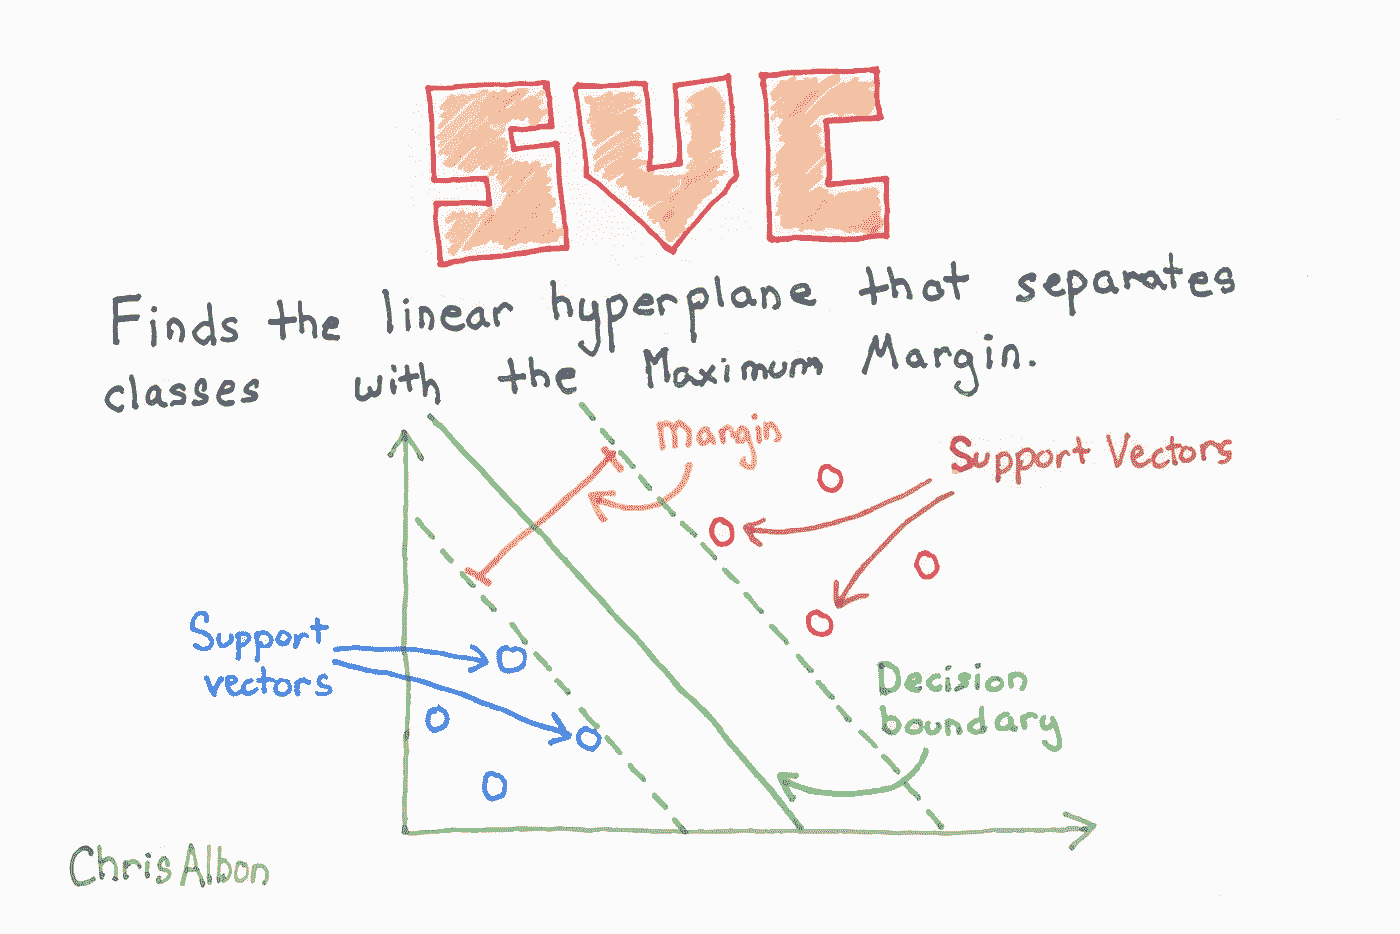 SVC
Finds the linear hyperplane that separates
classes with the Maximum Margin.
Margin
Support Vectors
Support
vectors
Decision
boundary
Chris Albon